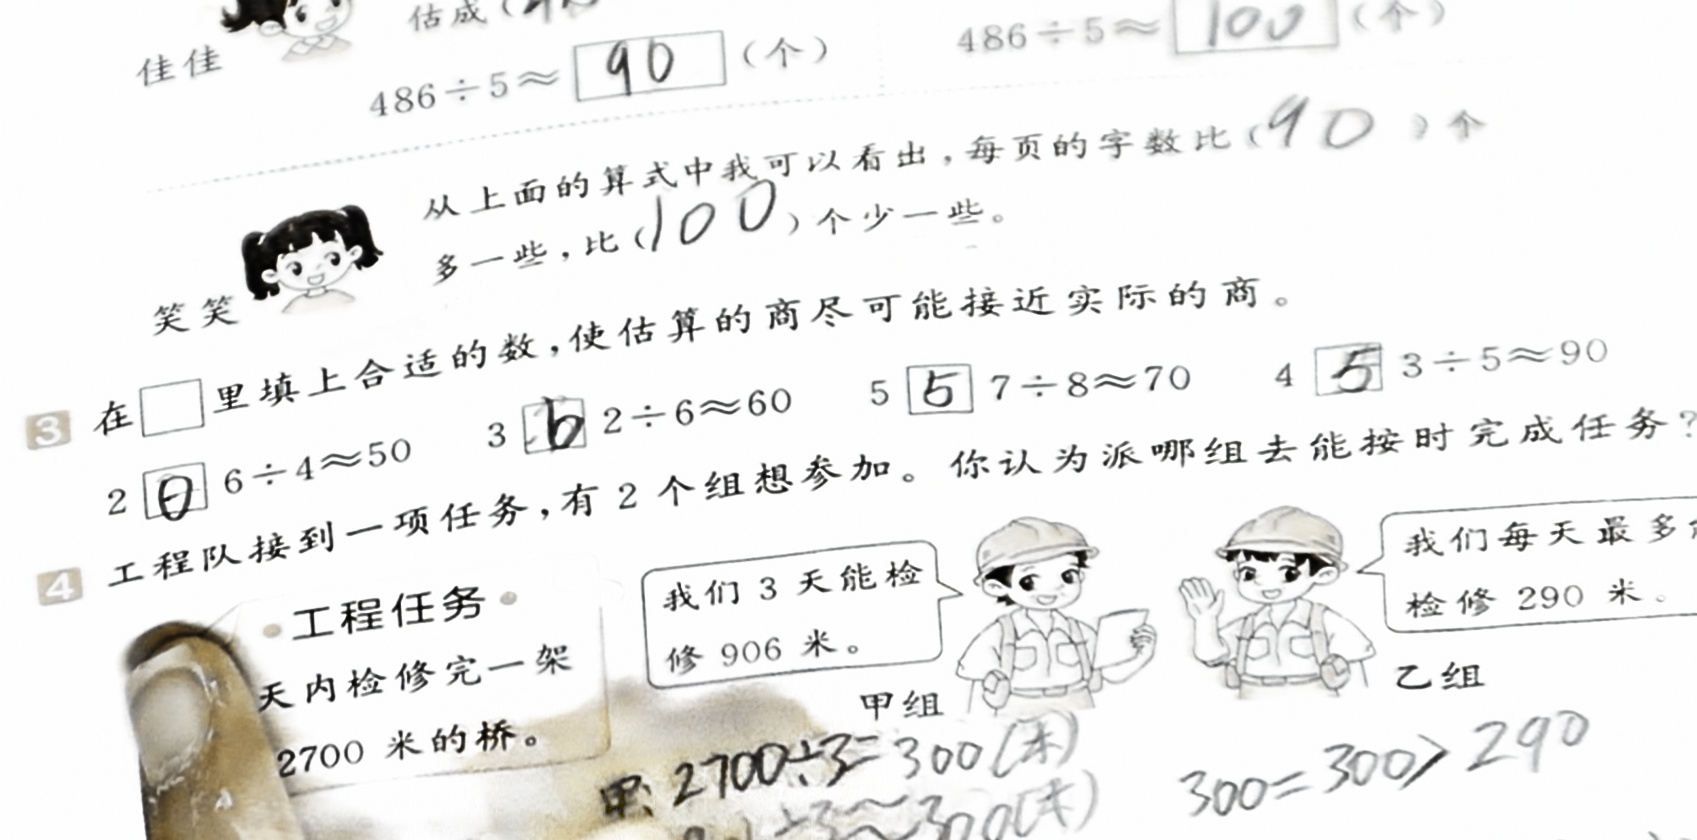 佳佳
估成(
486÷5≈ 90 (个)
486÷5≈ 100 (个)
从上面的算式中我可以看出,每页的字数比(90)个
多一些,比(100)个少一些。
笑笑
3 在□里填上合适的数,使估算的商尽可能接近实际的商。
2 0 6÷4≈50 3 6 2÷6≈60 5 5 7÷8≈70 4 5 3÷5≈90
4 工程队接到一项任务,有2个组想参加。你认为派哪组去能按时完成任务?
工程任务
天内检修完一架
2700米的桥。
我们3天能检
修906米。
甲组
我们每天最多
检修290米。
乙组
甲: 2700÷3=300(米)
÷3≈300(米)
300=300>290